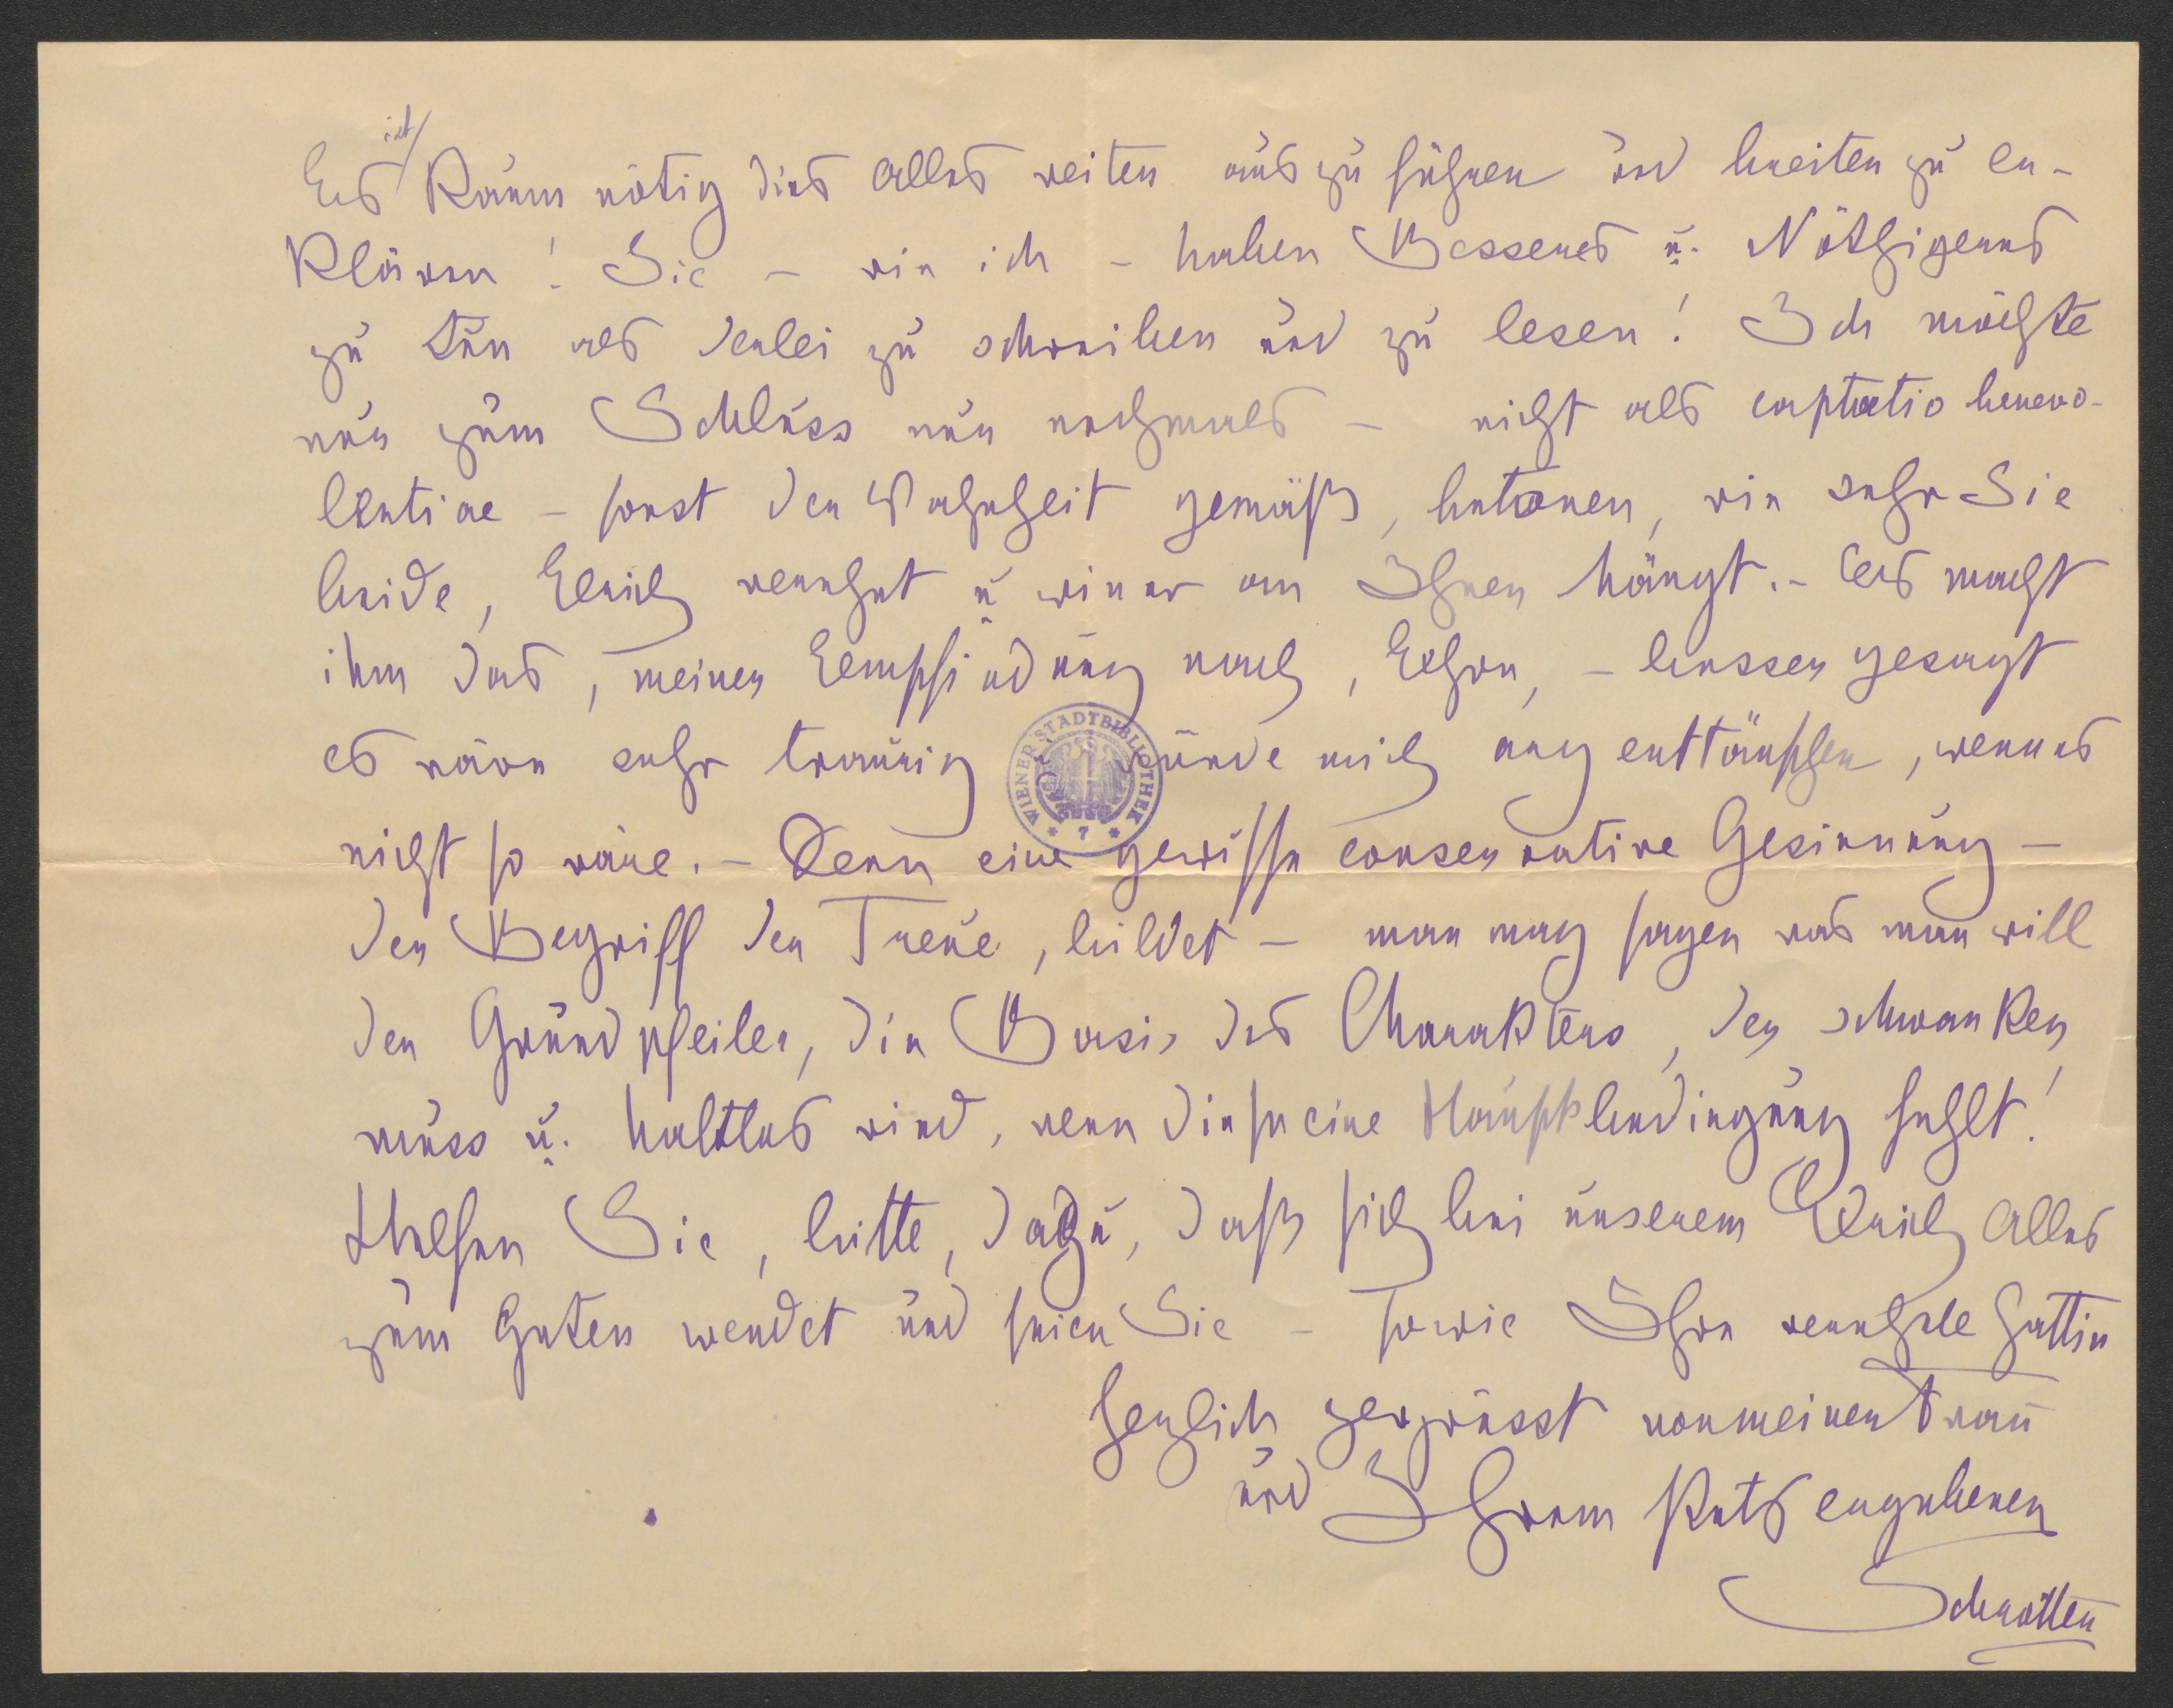 Es ist Kaum nötig dies Alles weiter aus zu führen und breiter zu er-
klären! Sie – wie ich – haben Besseres u. Nöthigeres
zu tun als derlei zu schreiben und zu lesen! Ich möchte
nur zum Schluss nur nochmals – nicht als captatio benevo-
lentiae – sonst der Wahrheit gemäß, betonen, wie sehr Sie
beide, Erich verehrt u wie er an Ihnen hängt. – Es macht
ihm das, meiner Empfindung nach, Ehre, – besser gesagt
es wäre sehr traurig würde mich arg enttäuschen, wenn es
nicht so wäre. – Denn eine gewisse conservative Gesinnung –
der Begriff der Treue, bildet – man mag sagen was man will
den Grundpfeiler, die Basis des Charakters, der schwanken
muss u. haltlos wird, wenn diese eine Hauptbedingung fehlt!
Helfen Sie, bitte, dazu, daß sich bei unserem Erich Alles
zum Guten wendet und seien Sie – sowie Ihre verehrte Gattin
herzlich gegrüsst von meiner Frau
und Ihrem stets ergebenen
Schrotter
WIENER STADTBIBLIOTHEK
* 7 *